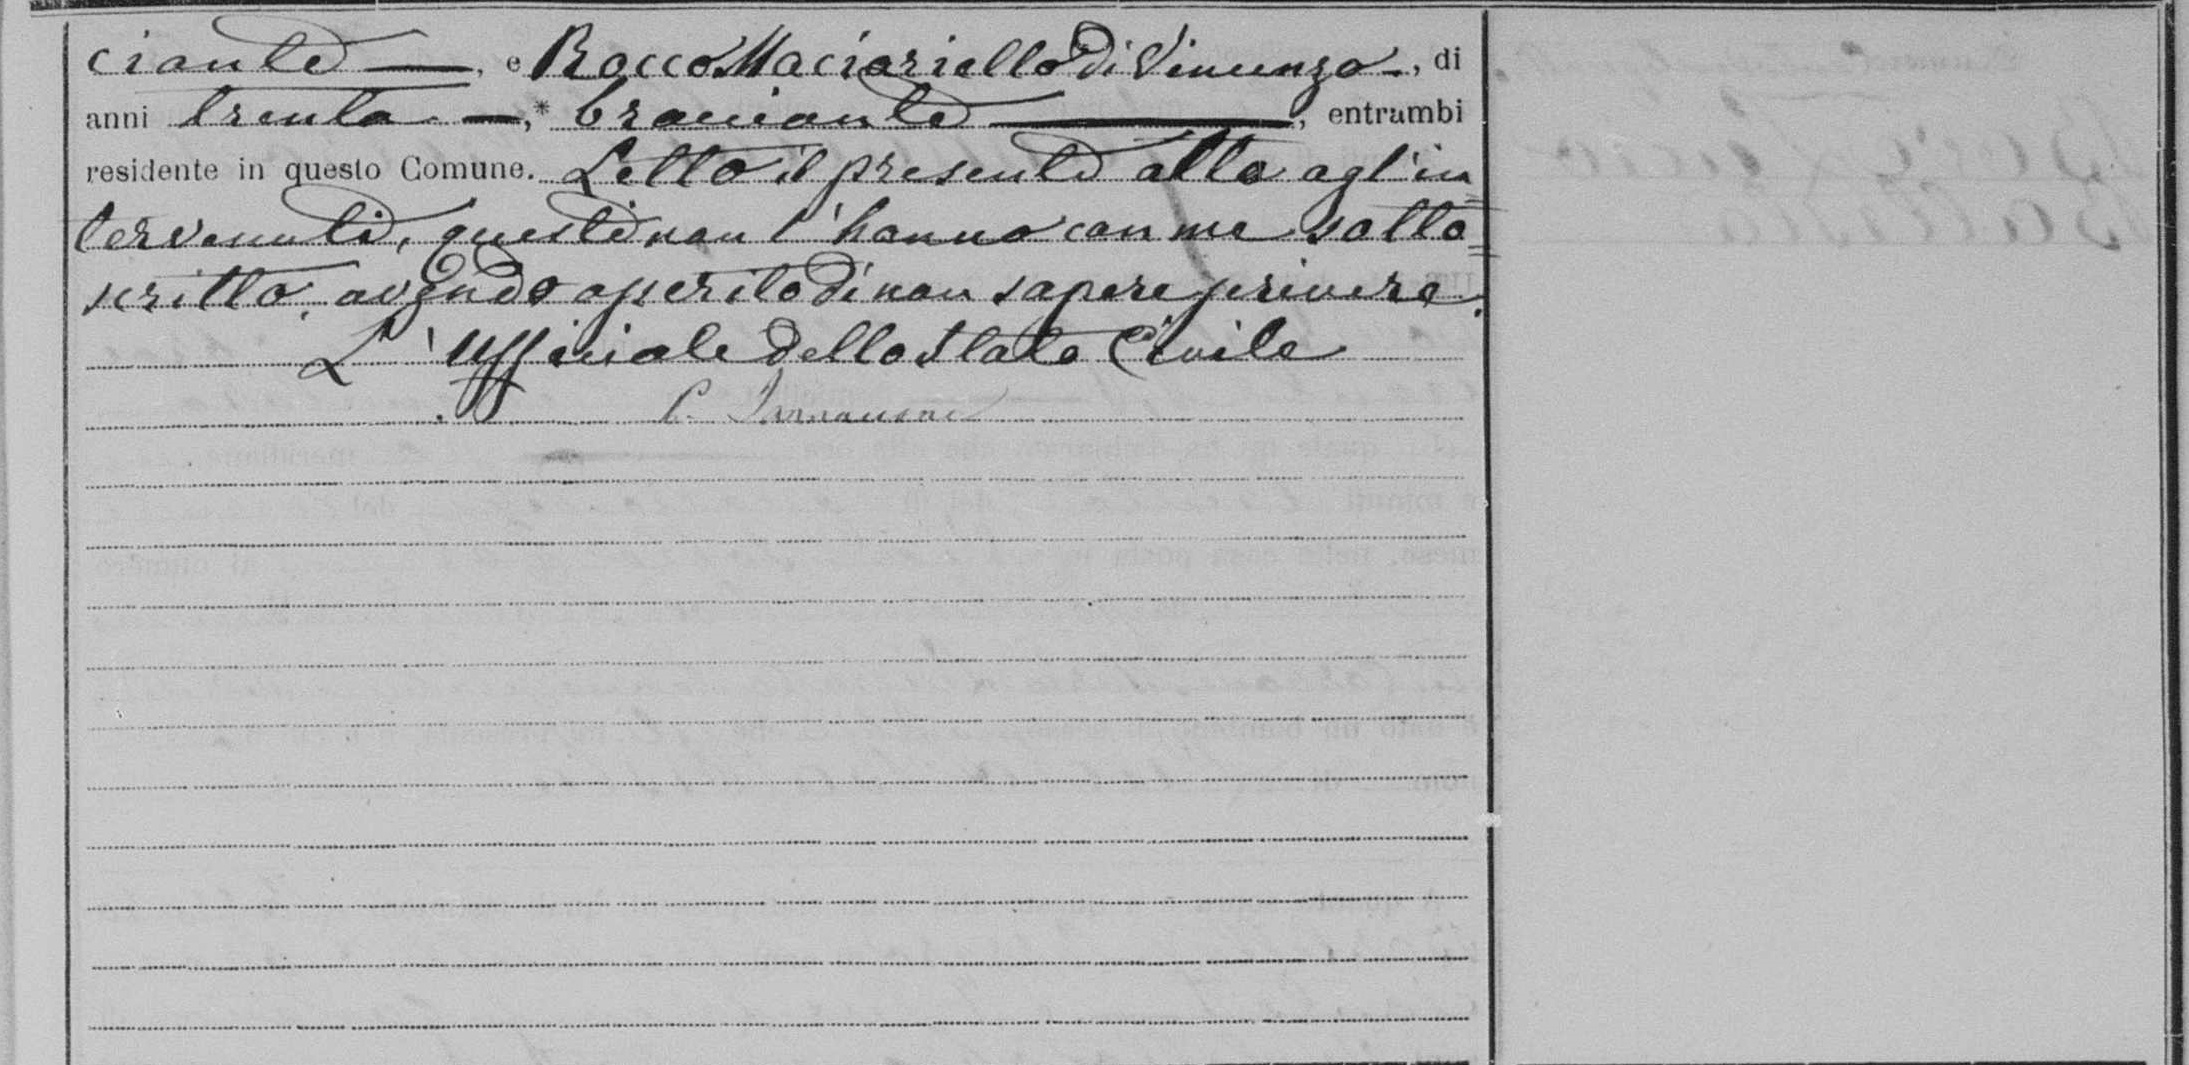 ciante —, e Rocco Maciariello di Vincenzo —, di
anni trenta —,* bracciante —, entrambi
residente in questo Comune. Letto il presente atto agl'in=
tervenuti, questi non l'hanno con me sotto=
scritto, avendo asserito di non sapere scrivere.
L'Ufficiale dello Stato Civile